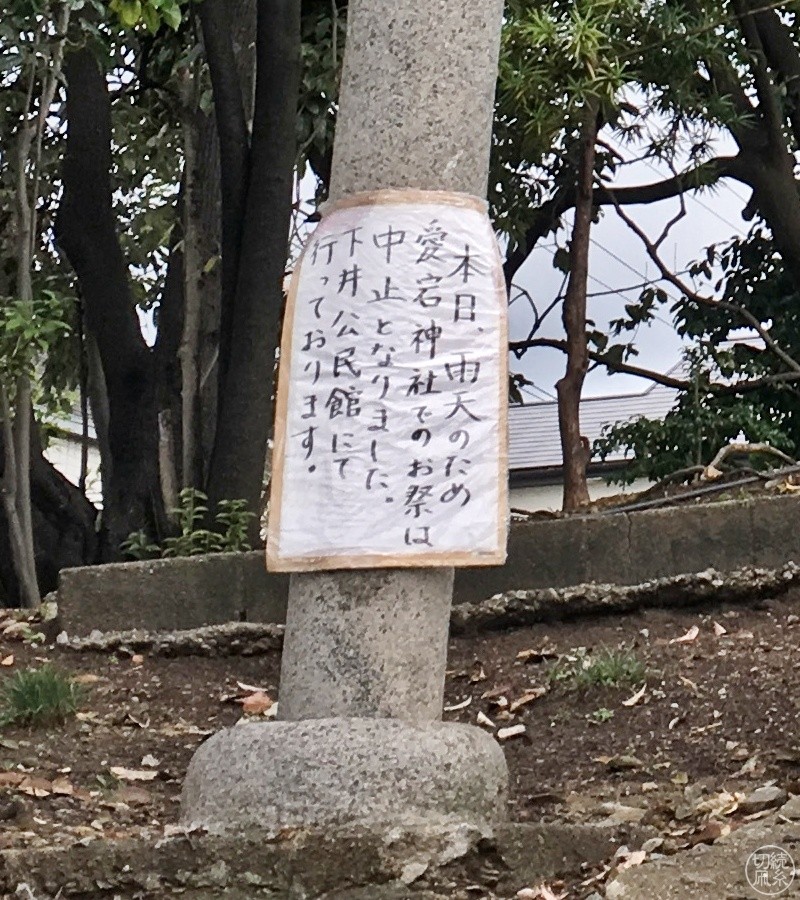 本日、雨天のため
愛宕神社でのお祭は
中止となりました。
下井公民館にて
行っております。